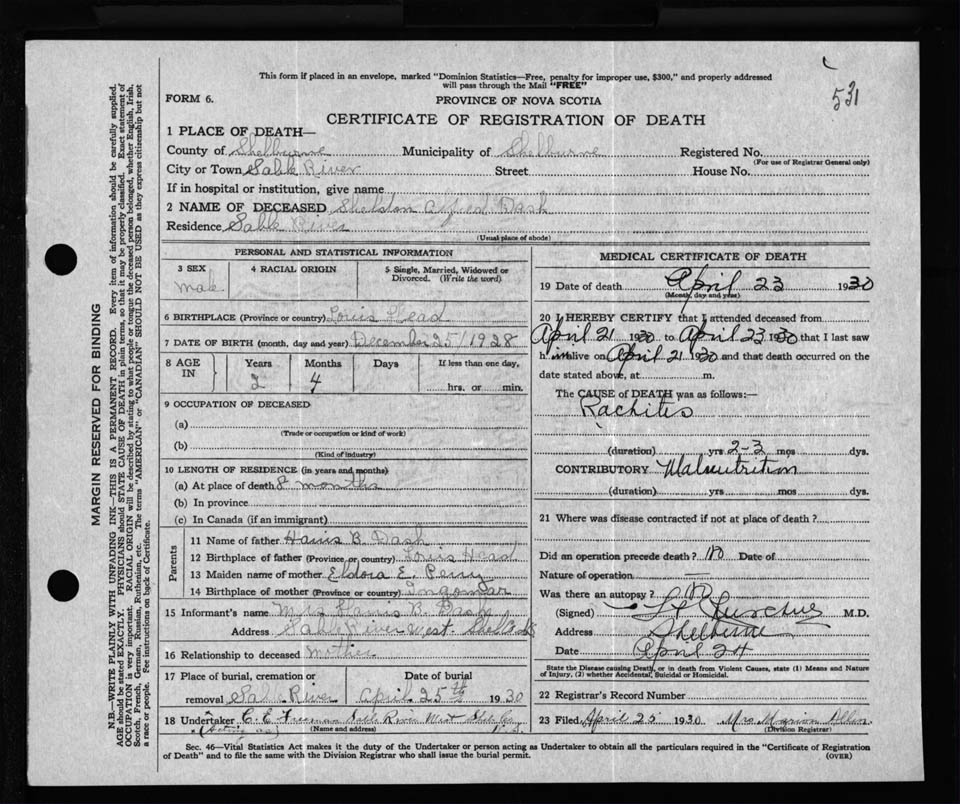 This form if placed in an envelope, marked "Dominion Statistics—Free, penalty for improper use, $300," and properly addressed
will pass through the Mail "FREE"
531
FORM 6.
PROVINCE OF NOVA SCOTIA
CERTIFICATE OF REGISTRATION OF DEATH
MARGIN RESERVED FOR BINDING
N.B.—WRITE PLAINLY WITH UNFADING INK—THIS IS A PERMANENT RECORD. Every item of information should be carefully supplied.
AGE should be stated EXACTLY. PHYSICIANS should STATE CAUSE OF DEATH in plain terms, so that it may be properly classified. Exact statement of
OCCUPATION is very important. RACIAL ORIGIN will be described by stating to what people or tongue the deceased person belonged, whether English, Irish,
Scotch, French, German, Russian, Ruthenian, etc. The terms "AMERICAN" or "CANADIAN" SHOULD NOT BE USED as they express citizenship but not
a race or people. See instructions on back of Certificate.
1 PLACE OF DEATH—
County of Shelburne Municipality of Shelburne Registered No.
(For use of Registrar General only)
City or Town Sable River Street House No.
If in hospital or institution, give name
2 NAME OF DECEASED Sheldon Alfred Dash
Residence Sable River
(Usual place of abode)
PERSONAL AND STATISTICAL INFORMATION
3 SEX 4 RACIAL ORIGIN 5 Single, Married, Widowed or
Divorced. (Write the word)
male
6 BIRTHPLACE (Province or country) Louis Head
7 DATE OF BIRTH (month, day and year) December 25/1928
8 AGE IN Years Months Days If less than one day,
2 4 hrs. or min.
9 OCCUPATION OF DECEASED
(a)
(Trade or occupation or kind of work)
(b)
(Kind of industry)
10 LENGTH OF RESIDENCE (in years and months)
(a) At place of death 8 months
(b) In province
(c) In Canada (if an immigrant)
Parents
11 Name of father Harris B. Dash
12 Birthplace of father (Province or country) Louis Head
13 Maiden name of mother Eldora E. Perry
14 Birthplace of mother (Province or country) Ingomar
15 Informant's name Mrs Harris B. Dash
Address Sable River West. Shel Co NS
16 Relationship to deceased Mother
17 Place of burial, cremation or Date of burial
removal Sable River April 25th 1930
18 Undertaker C. E. Freeman Sable River West Shel. Co.
(acting as) (Name and address) N.S.
MEDICAL CERTIFICATE OF DEATH
19 Date of death April 23 1930
(Month, day and year)
20 I HEREBY CERTIFY that I attended deceased from
April 21 1930 to April 23 1930 that I last saw
him alive on April 21 1930 and that death occurred on the
date stated above, at m.
The CAUSE of DEATH was as follows:
Rachitis
(duration) yrs 2-3 mos dys.
CONTRIBUTORY Malnutrition
(duration) yrs mos dys.
21 Where was disease contracted if not at place of death?
Did an operation precede death? No Date of
Nature of operation
Was there an autopsy? No
(Signed) M.D.
Address Shelburne
Date April 24
State the Disease causing Death, or in death from Violent Causes, state (1) Means and Nature
of Injury, (2) whether Accidental, Suicidal or Homicidal.
22 Registrar's Record Number
23 Filed April 25 1930 Mrs. Marion Allen
(Division Registrar)
Sec. 46—Vital Statistics Act makes it the duty of the Undertaker or person acting as Undertaker to obtain all the particulars required in the "Certificate of Registration
of Death" and to file the same with the Division Registrar who shall issue the burial permit.
(OVER)